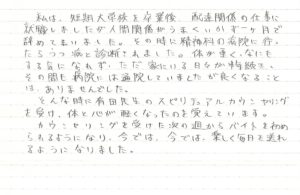 私は、短期大学校を卒業後、配達関係の仕事に
就職しましたが人間関係がうまくいかず一ヶ月で
辞めてまいました。その時に精神科の病院に行っ
たらうつ病と診断されました。体が重く、なにも
する気になれず、ただ家にいる日々が続いて、
その間も病院には通院していましたが良くなること
は、ありませんでした。
そんな時に有田先生のスピリチュアルカウンセリング
を受け、体と心が軽くなったのを覚えています。
カウンセリングを受けた次の週からバイトを初め
られるようになり、今では、今では、楽しく毎日を送れ
るようになりました。